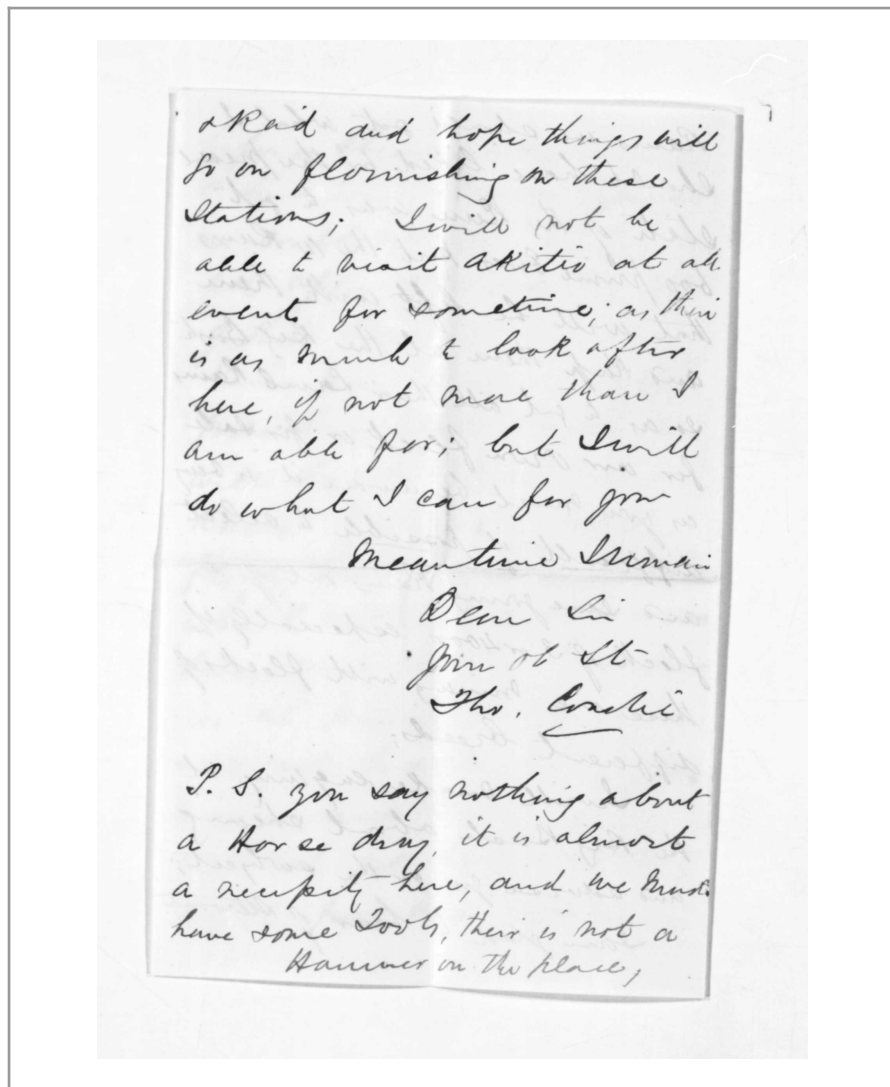 and hope things will
go on flourishing on these
Stations; I will not be
able to visit Akitio at all
events for sometime, as their
is as much to look after
here, if not more than I
am able for; but I will
do what I can for you
Meantime I remain
Dear Sir
your ob St
Tho.
P. S. you say nothing about
a Horse dray, it is almost
a necessity here, and we must
have some Tools, their is not a
Hammer on the place,